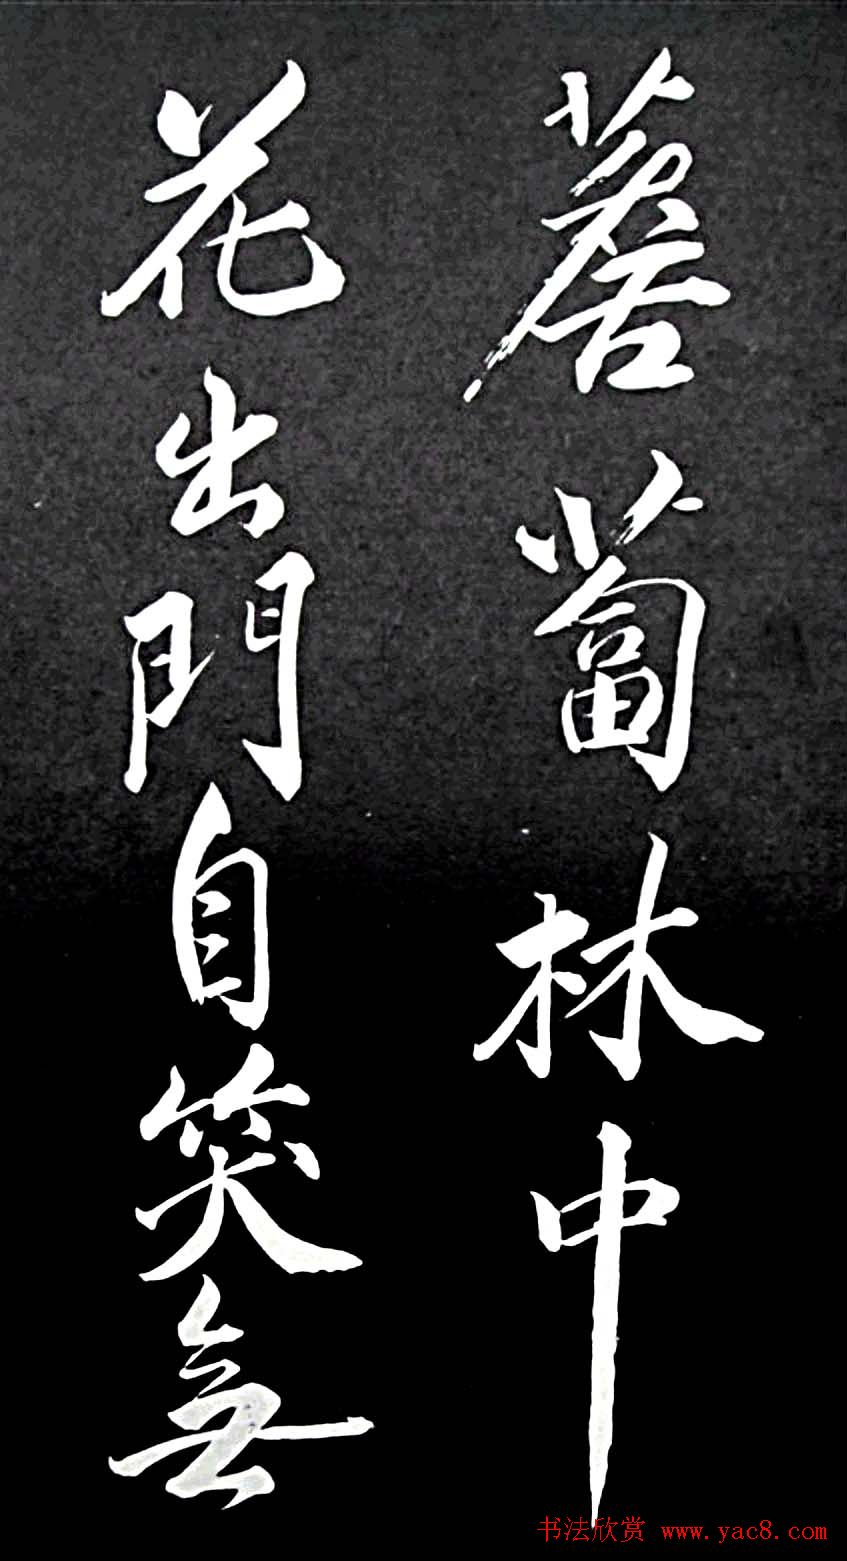 薝蔔林中
花出門自笑無
书法欣赏 www.yac8.com